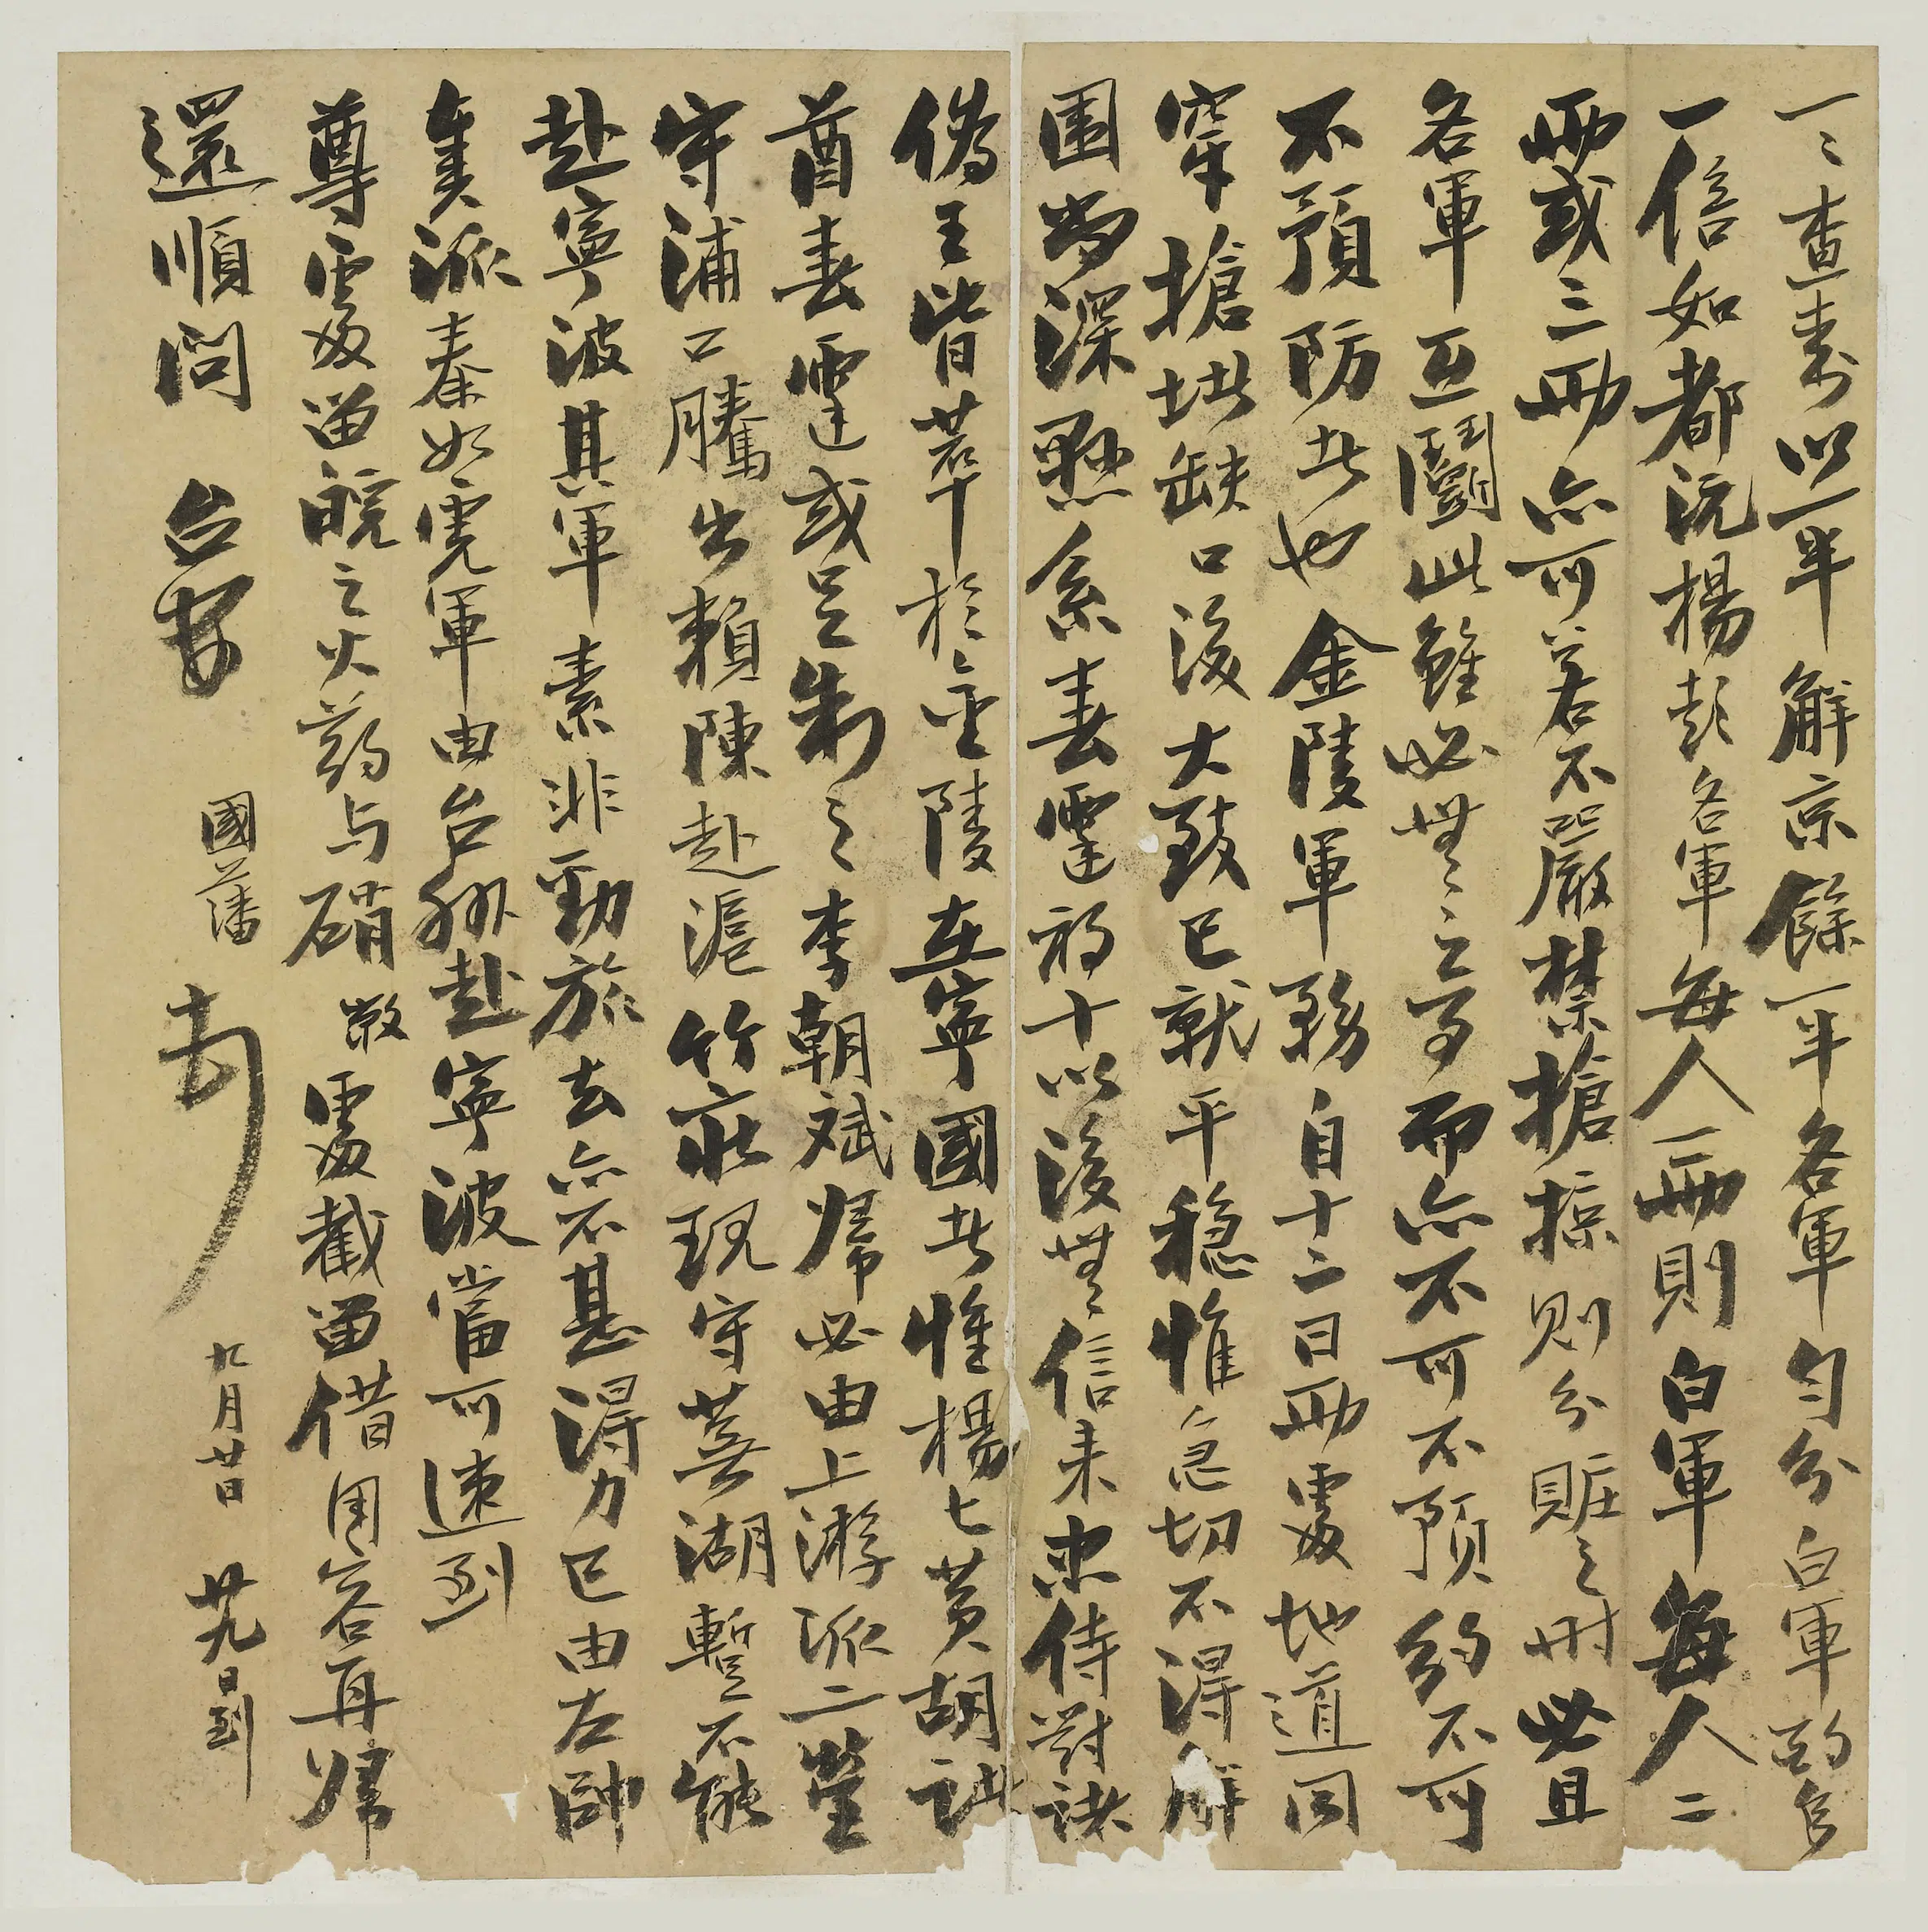 一一查以一半解京餘一半各軍勻分白軍酌多
一倍如都沅楊彭各軍每人一兩則白軍每人二
兩或三兩亦可若不嚴禁搶掠則分贓之時必且
各軍互鬭此雖必無之事而亦不可不預約不可
不預防者也金陵軍務自十二日兩處地道同
穿搶堵缺口後大致已就平穩惟急切不得解
圍尚深懸系春霆初十以後無信來忠侍對諸
偽王皆萃於金陵在寧國者惟楊七黃胡諸
酋春霆或足制之李朝斌歸必由上游派二營
守浦口騰出賴陳赴滬竹莊現守蕪湖暫不能
赴寧波其軍素非勁旅去亦不甚得力已由左帥
奏派秦如虎軍由台州赴寧波當可速到
尊處留皖之火藥与硝敝處截留借用容再歸
還順問 台安 國藩 頓首 九月廿日 廿九日到